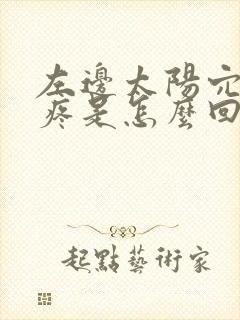 左邊太陽穴
疼是怎麼回
起點藝術家